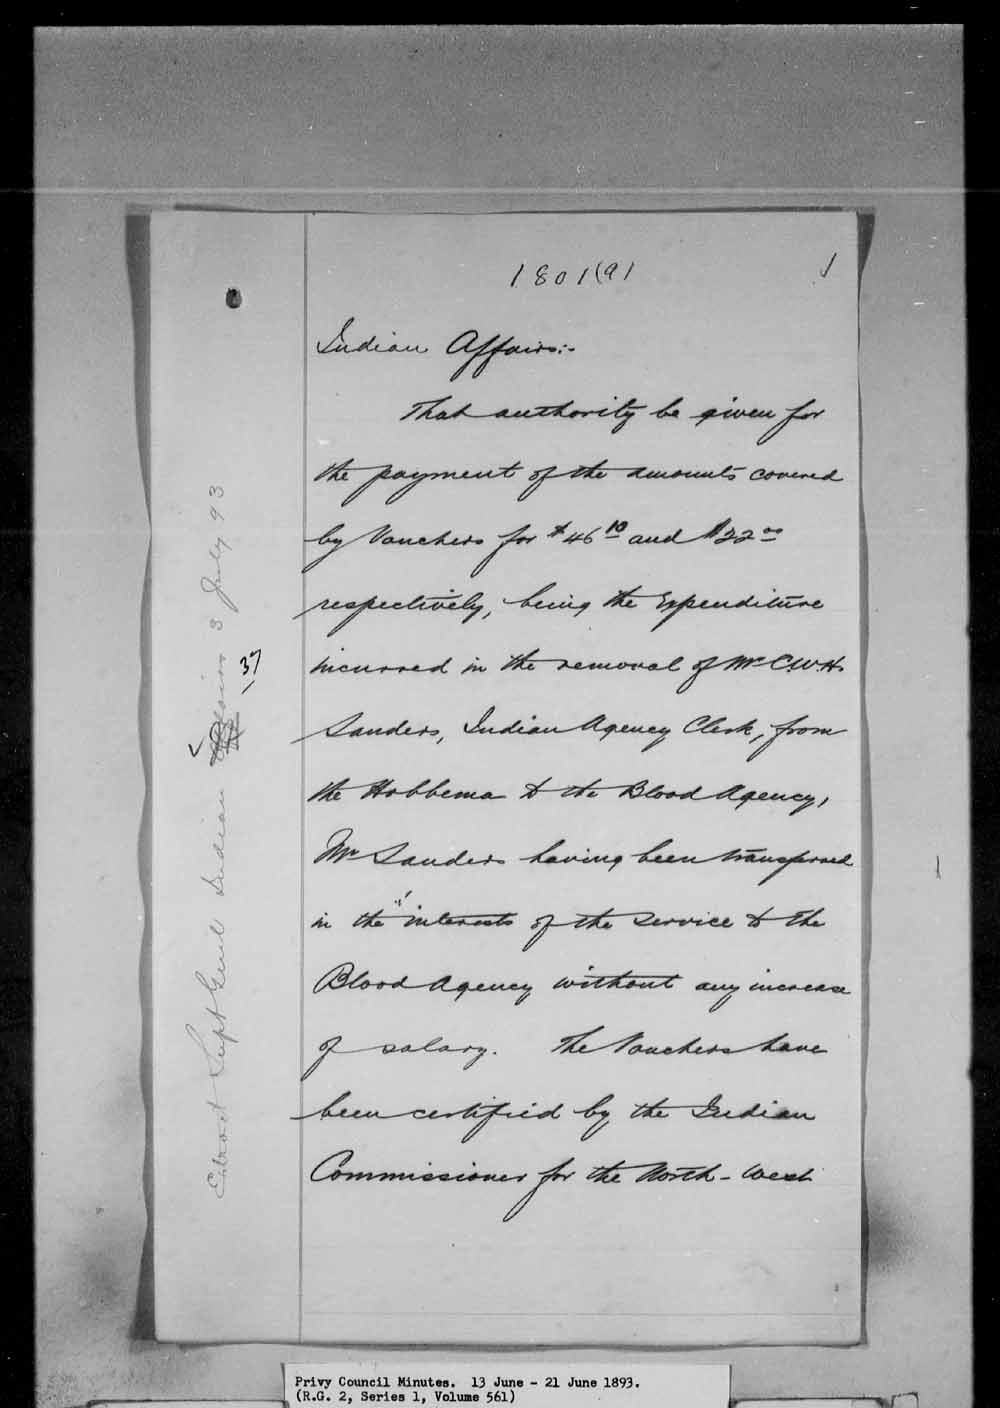 1801(a)
1
Indian Affairs:-
That authority be given for
the payment of the amounts covered
by Vouchers for $46 10 and $22 00
respectively, being the Expenditure
incurred in the removal of Mr C.W.H.
Sanders, Indian Agency Clerk, from
the Hobbema to the Blood Agency,
Mr Sanders having been transferred
in the interests of the service to the
Blood Agency without any increase
of salary. The Vouchers have
been certified by the Indian
Commissioner for the North-West
Extract Supt Genl Indian Affairs 3 July 93
37
Privy Council Minutes. 13 June - 21 June 1893.
(R.G. 2, Series 1, Volume 561)